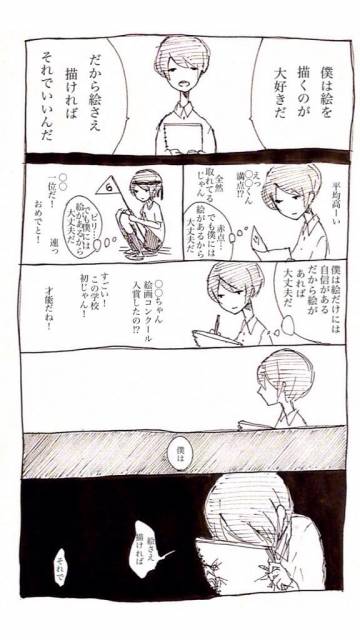 僕は絵を
描くのが
大好きだ
だから絵さえ
描ければ
それでいいんだ
平均高ーい
えっ
〇〇くん
満点!?
全然
取れてる
じゃん
赤点…
でも僕には
絵があるから
大丈夫だ
ビリ…
でも僕には
絵があるから
大丈夫だ
6
速っ
〇〇
一位だ!
おめでと!
僕は絵だけには
自信がある
だから絵が
あれば
大丈夫だ
〇〇ちゃん
絵画コンクール
入賞したの!?
すごい!
この学校
初じゃん!
才能だね!
僕は
絵さえ
描ければ
それで